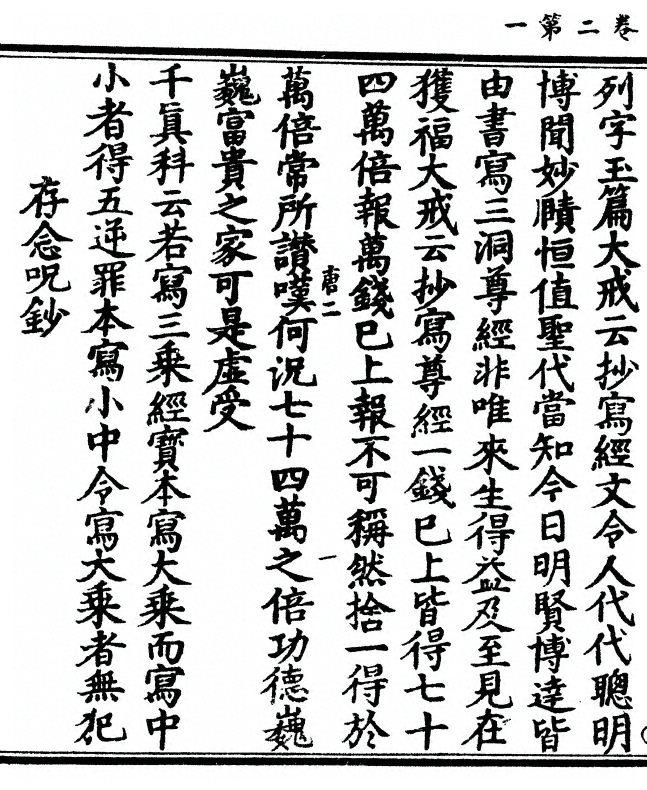 卷二第一
列字玉篇大戒云抄寫經文令人代代聰明
博聞妙賾恒值聖代當知今日明賢博達皆
由書寫三洞尊經非唯來生得益及至見在
獲福大戒云抄寫尊經一錢已上皆得七十
四萬倍報萬錢已上報不可稱然捨一得於
唐二
萬倍常所讃嘆何況七十四萬之倍功德巍
巍富貴之家可是虛受
千真科云若寫三乘經寶本寫大乘而寫中
小者得五逆罪本寫小中令寫大乘者無犯
存念呪鈔